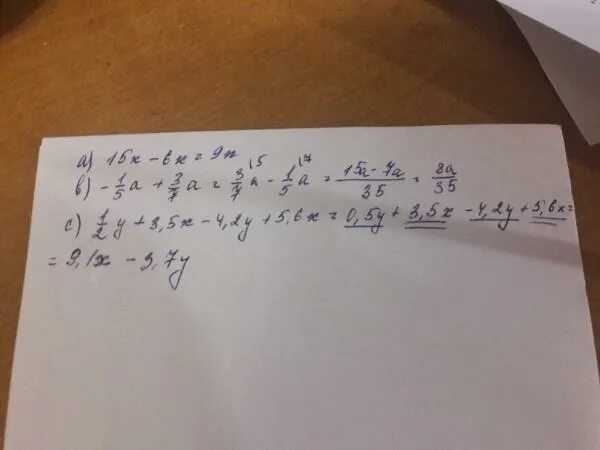 a) 15x - 6x = 9x
b) -1/5 a + 3/7 a = 3/7 \5 a - 1/5 \7 a = (15a - 7a)/35 = 8a/35
c) 1/2 y + 3,5x - 4,2y + 5,6x = 0,5y + 3,5x - 4,2y + 5,6x =
= 9,1x - 3,7y